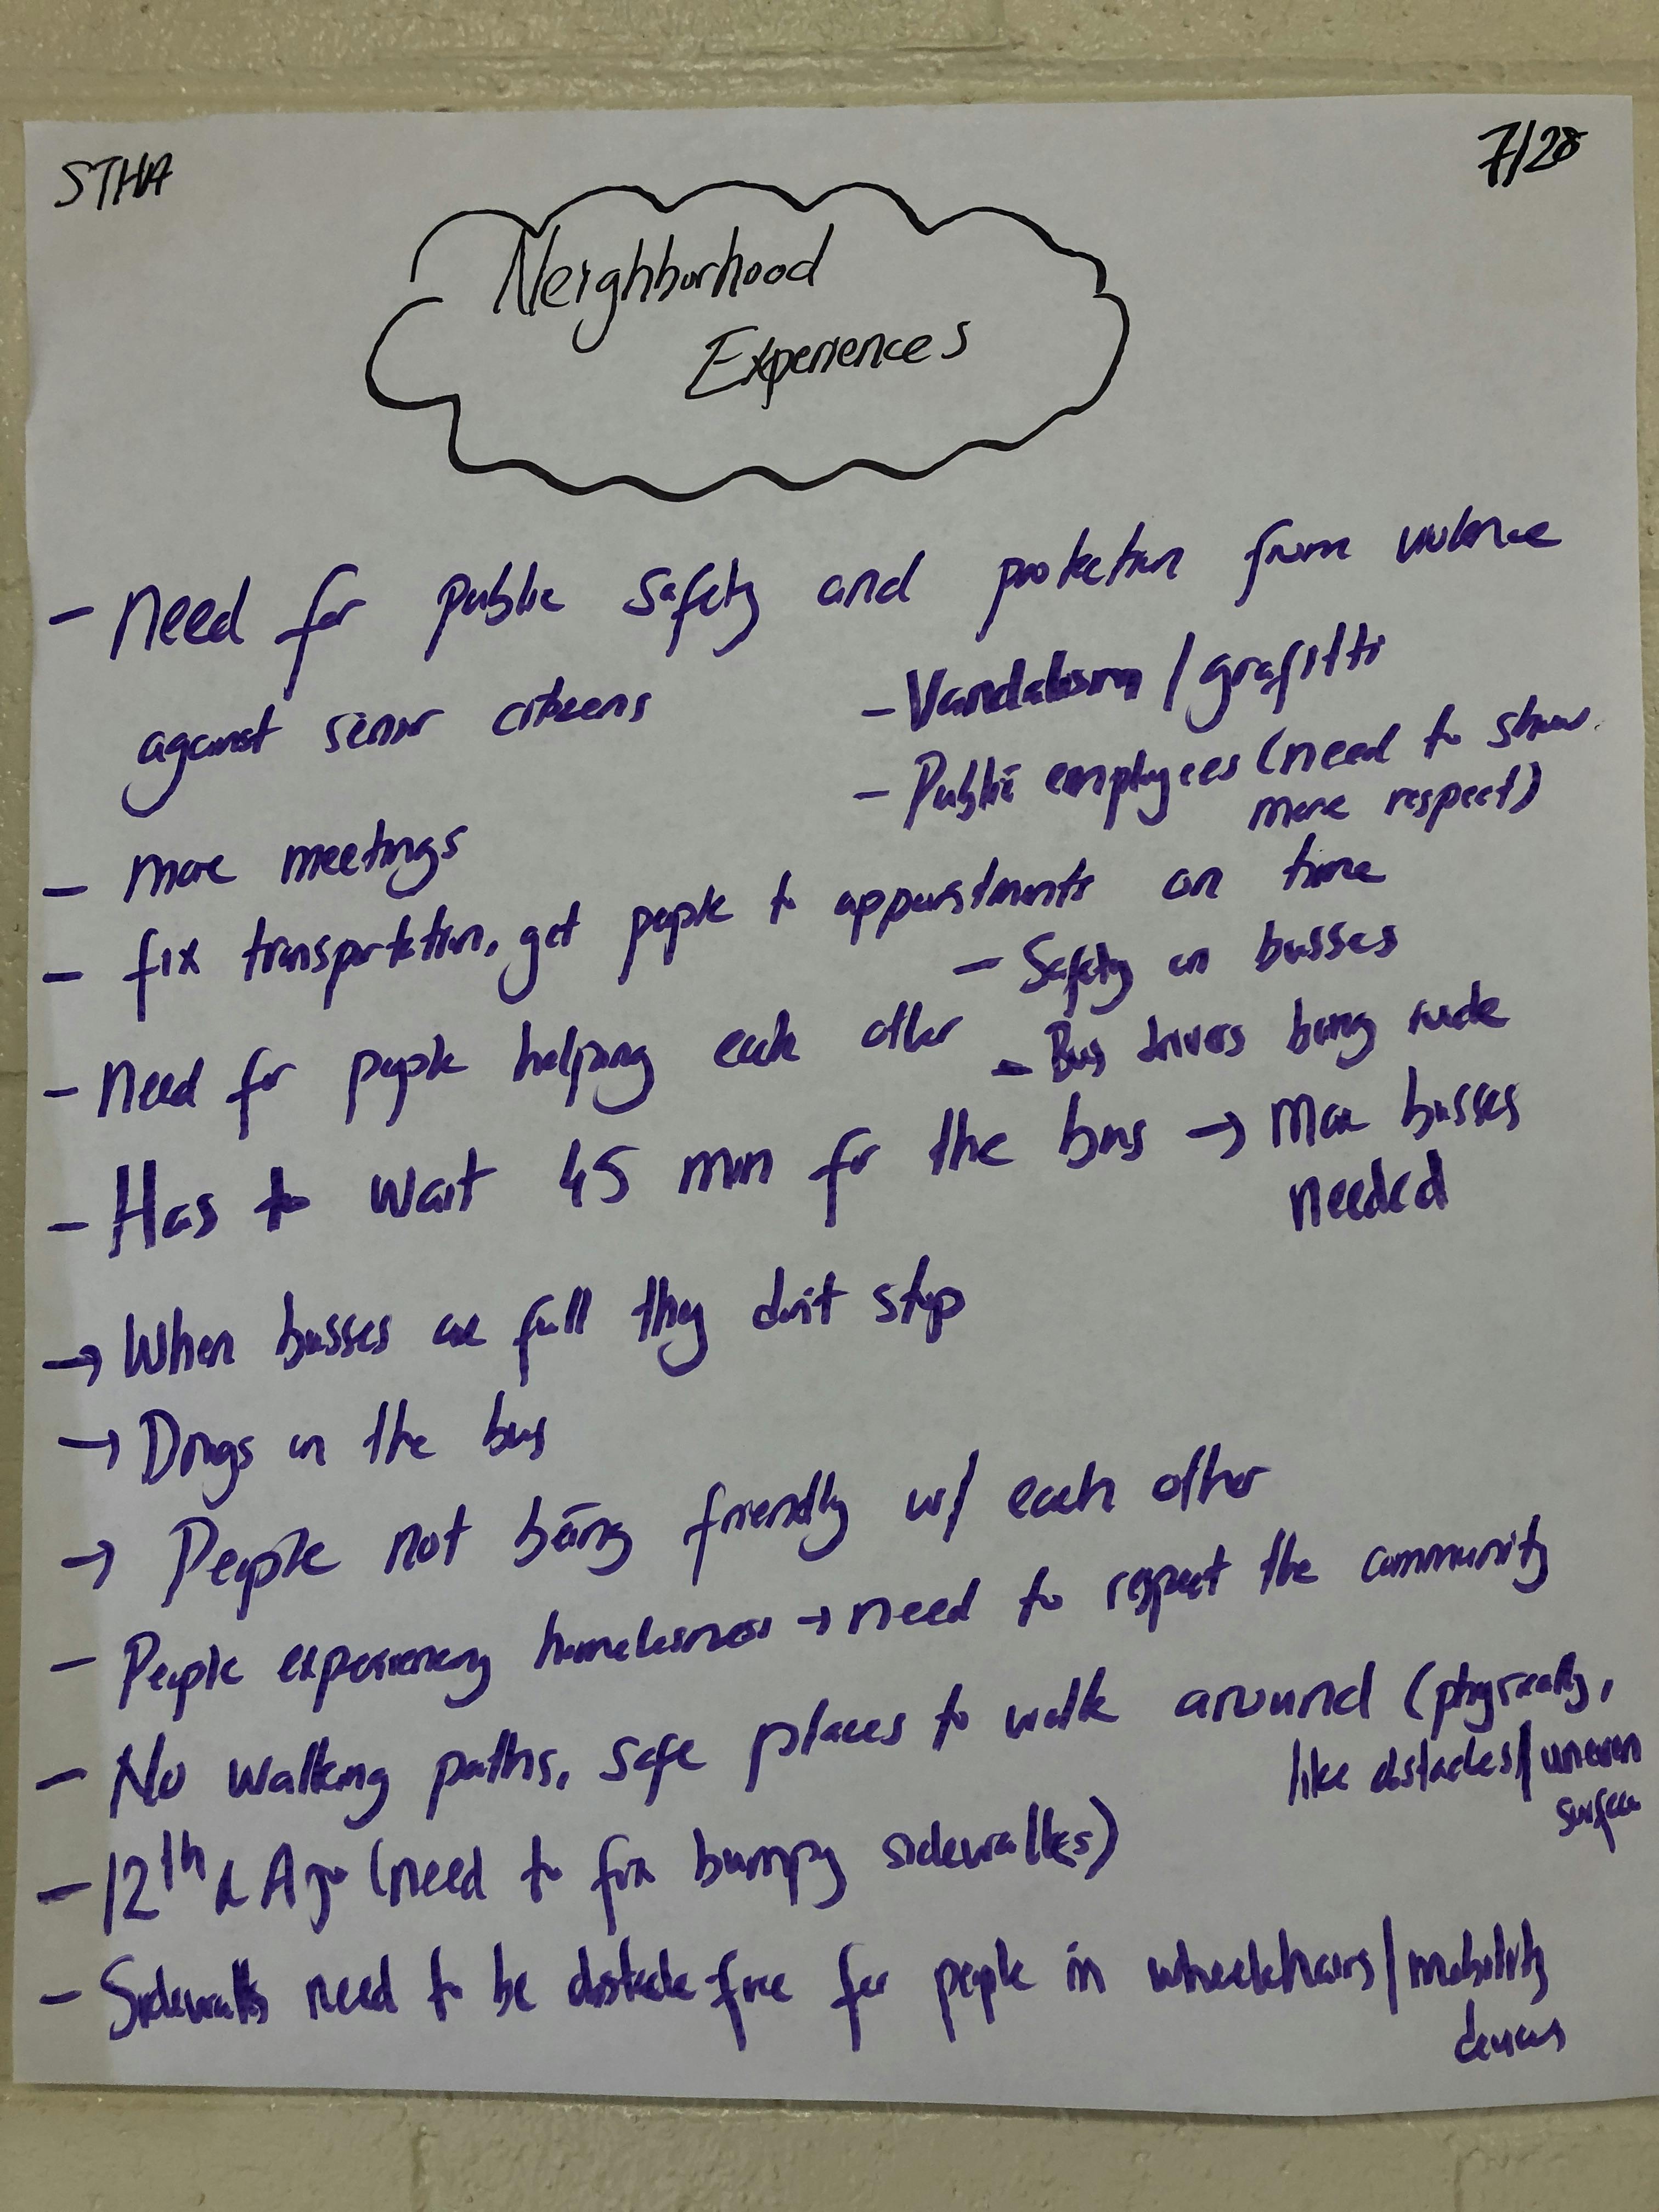 STHA
7/28
Neighborhood
Experiences
- Need for public safety and protection from violence
against senior citizens
- Vandalism / grafitti
- Public employees (need to show
more respect)
- more meetings
- fix transportation, get people to appointments on time
- Safety on busses
- Need for people helping each other
- Bus drivers being rude
- Has to wait 45 min for the bus → More busses
needed
→ When busses are full they don't stop
→ Drugs on the bus
→ People not being friendly w/ each other
- People experiencing homelessness → need to respect the community
- No walking paths, safe places to walk around (physically,
like obstacles/uneven
surface
- 12th & Ajo (need to fix bumpy sidewalks)
- Sidewalks need to be obstacle-free for people in wheelchairs/mobility
devices